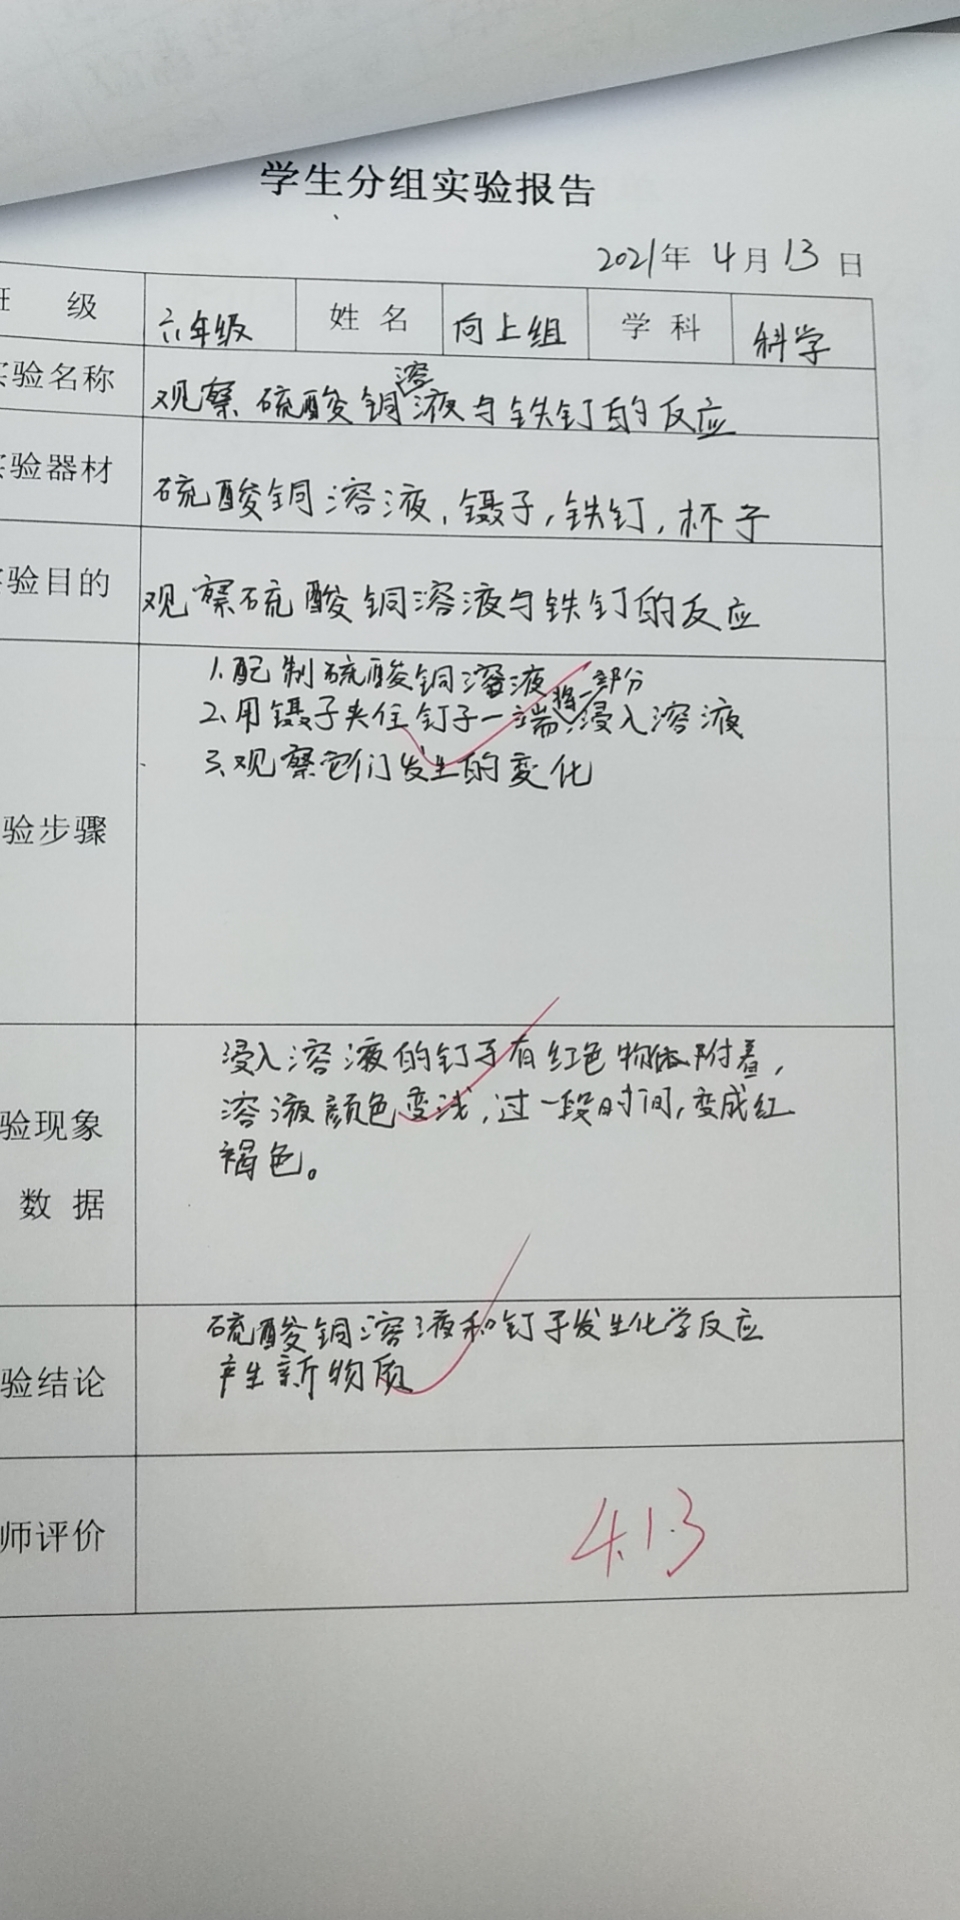 学生分组实验报告
2021年 4月 13日
班 级 六年级 姓 名 向上组 学 科 科学
实验名称 观察硫酸铜溶液与铁钉的反应
实验器材 硫酸铜溶液,镊子,铁钉,杯子
实验目的 观察硫酸铜溶液与铁钉的反应
1.配制硫酸铜溶液
2.用镊子夹住钉子一端,将一部分浸入溶液
3.观察它们发生的变化
验步骤
浸入溶液的钉子有红色物体附着,
溶液颜色变浅,过一段时间,变成红
褐色。
验现象
数 据
硫酸铜溶液和钉子发生化学反应
产生新物质
验结论
师评价
4.13